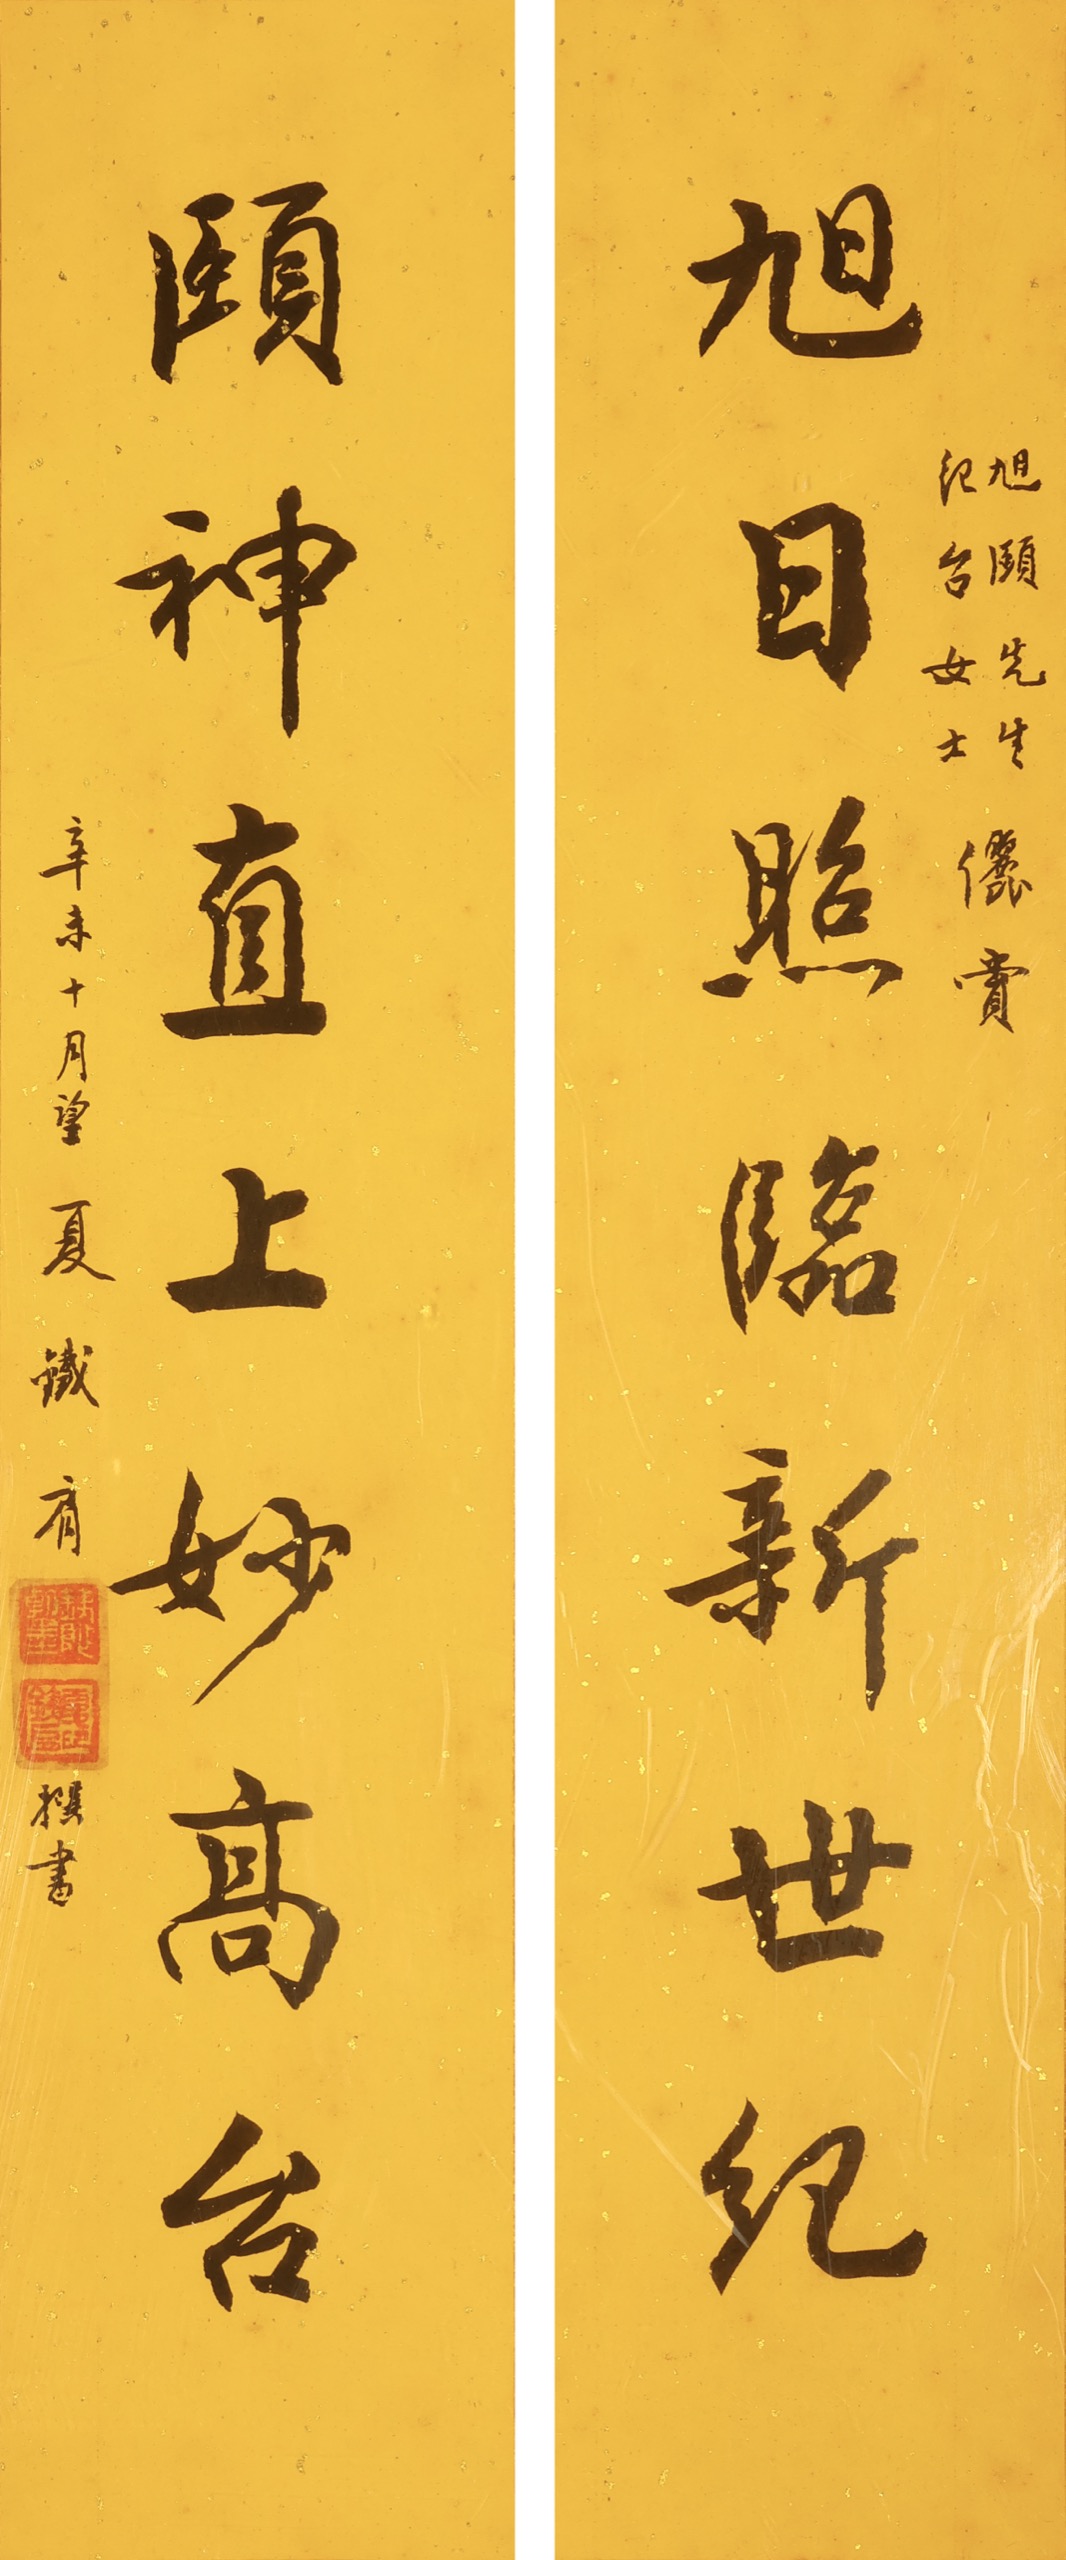 旭日照臨新世紀
旭頤先生
紀台女士
儷賞
頤神直上妙高台
辛未十月望 夏鐵肩
撰書